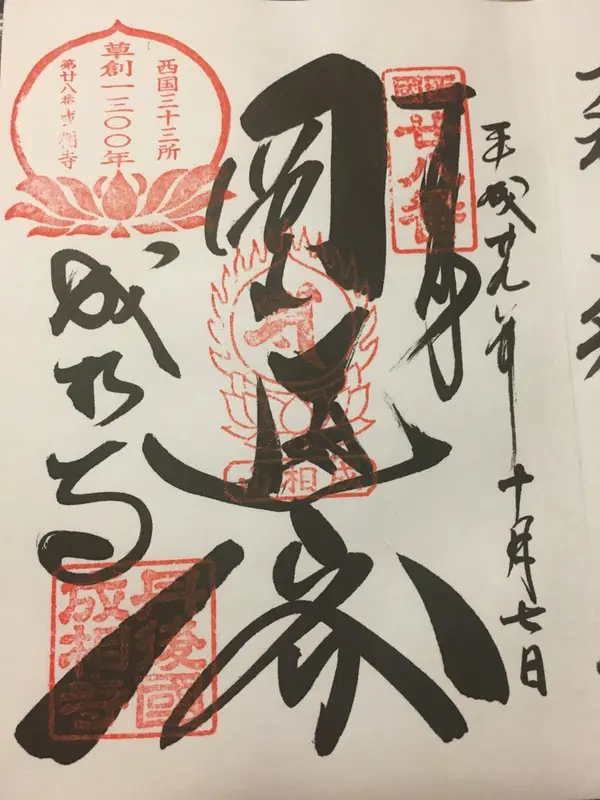 平成廿九年十月七日
奉拝
西國廿八番
圓通
成相寺
西国三十三所
草創一三〇〇年
第廿八番 成相寺
成相寺
丹後國
成相寺